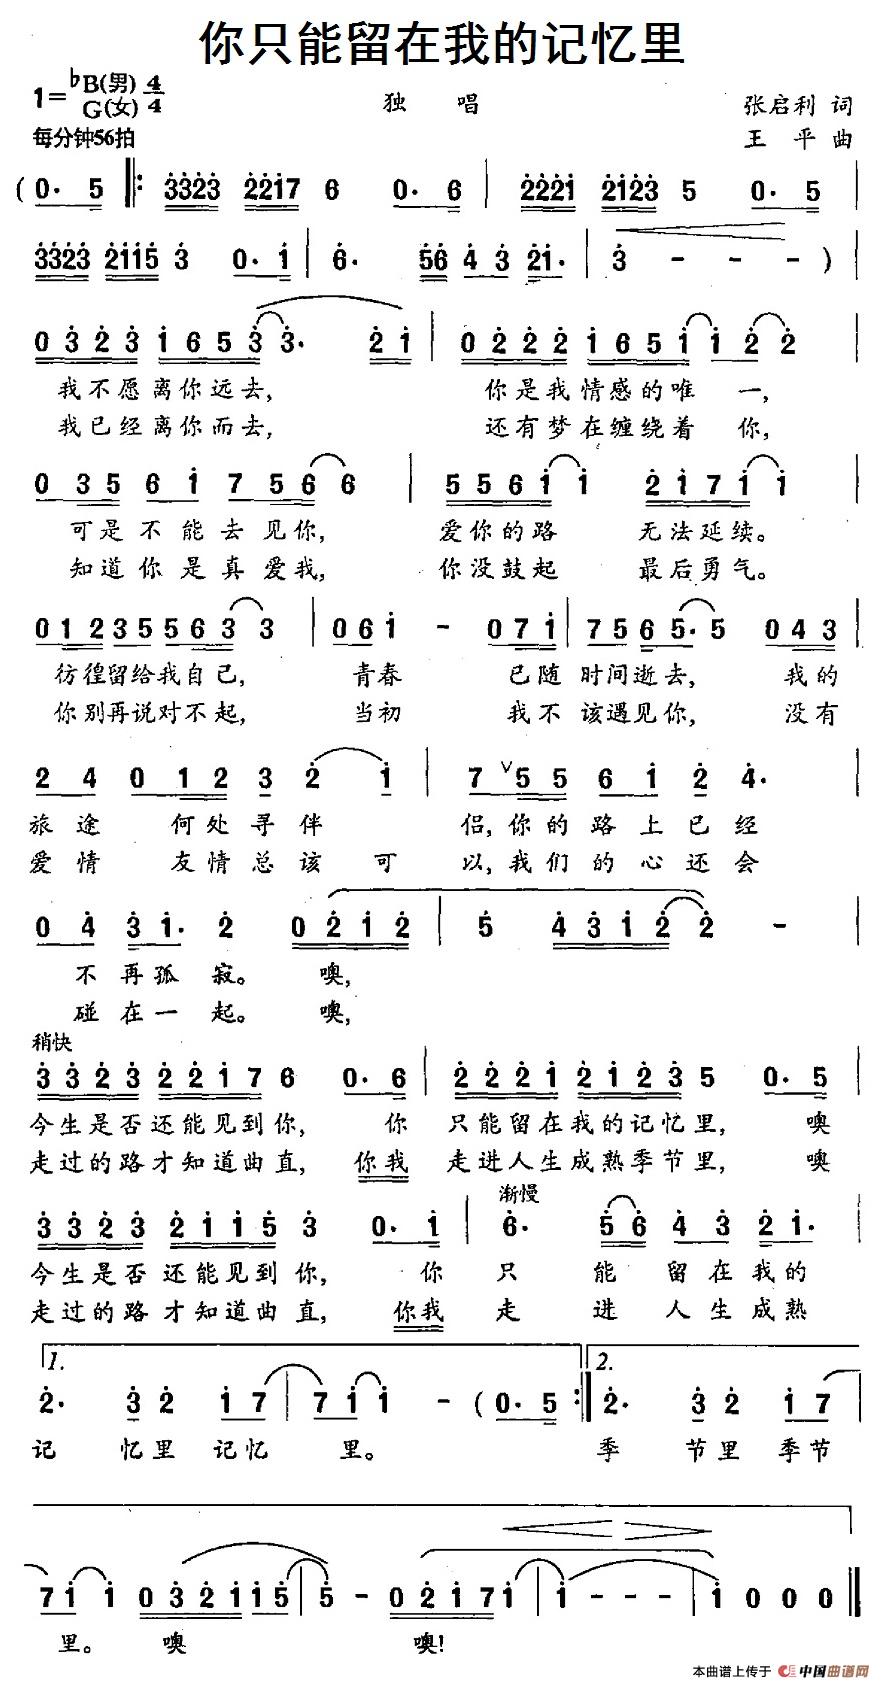 你只能留在我的记忆里
1=♭B(男) G(女) 4/4
独 唱
张启利 词
每分钟56拍
王 平 曲
(0· 5 ‖: 3323 2217 6 0· 6 | 2221 2123 5 0· 5 |
3323 2115 3 0· 1 | 6· 56 4 3 21· | 3 - - - ) |
0 3 2 3 1 6 5 3 3· 2 1 | 0 2 2 2 1 6 5 1 1 2 2 |
我不愿离你远去, 你是我情感的唯一,
我已经离你而去, 还有梦在缠绕着你,
0 3 5 6 1 7 5 6 6 | 5 5 6 1 1 2 1 7 1 1 |
可是不能去见你, 爱你的路 无法延续。
知道你是真爱我, 你没鼓起 最后勇气。
0 1 2 3 5 5 6 3 3 | 0 6 1 - 0 7 1 | 7 5 6 5· 5 0 4 3 |
彷徨留给我自己, 青春 已随时间逝去, 我的
你别再说对不起, 当初 我不该遇见你, 没有
2 4 0 1 2 3 2 1 | 7 ∨5 5 6 1 2 4· |
旅途 何处寻伴 侣,你的路上已经
爱情 友情总该可 以,我们的心还会
0 4 3 1· 2 0 2 1 2 | 5 4 3 1 2 2 - |
不再孤寂。噢,
碰在一起。噢,
稍快
3 3 2 3 2 2 1 7 6 0· 6 | 2 2 2 1 2 1 2 3 5 0· 5 |
今生是否还能见到你, 你 只能留在我的记忆里, 噢
走过的路才知道曲直, 你我 走进人生成熟季节里, 噢
渐慢
3 3 2 3 2 1 1 5 3 0· 1 | 6· 5 6 4 3 2 1· |
今生是否还能见到你, 你 只 能 留在我的
走过的路才知道曲直, 你我 走 进 人生成熟
1. 2.
2· 3 2 1 7 | 7 1 1 - (0· 5 :‖ 2· 3 2 1 7 |
记 忆里记忆 里。 季 节里季节
7 1 1 0 3 2 1 1 5 | 5 - 0 2 1 7 1 | 1 - - - | 1 0 0 0 ‖
里。 噢 噢!
本曲谱上传于 中国曲谱网